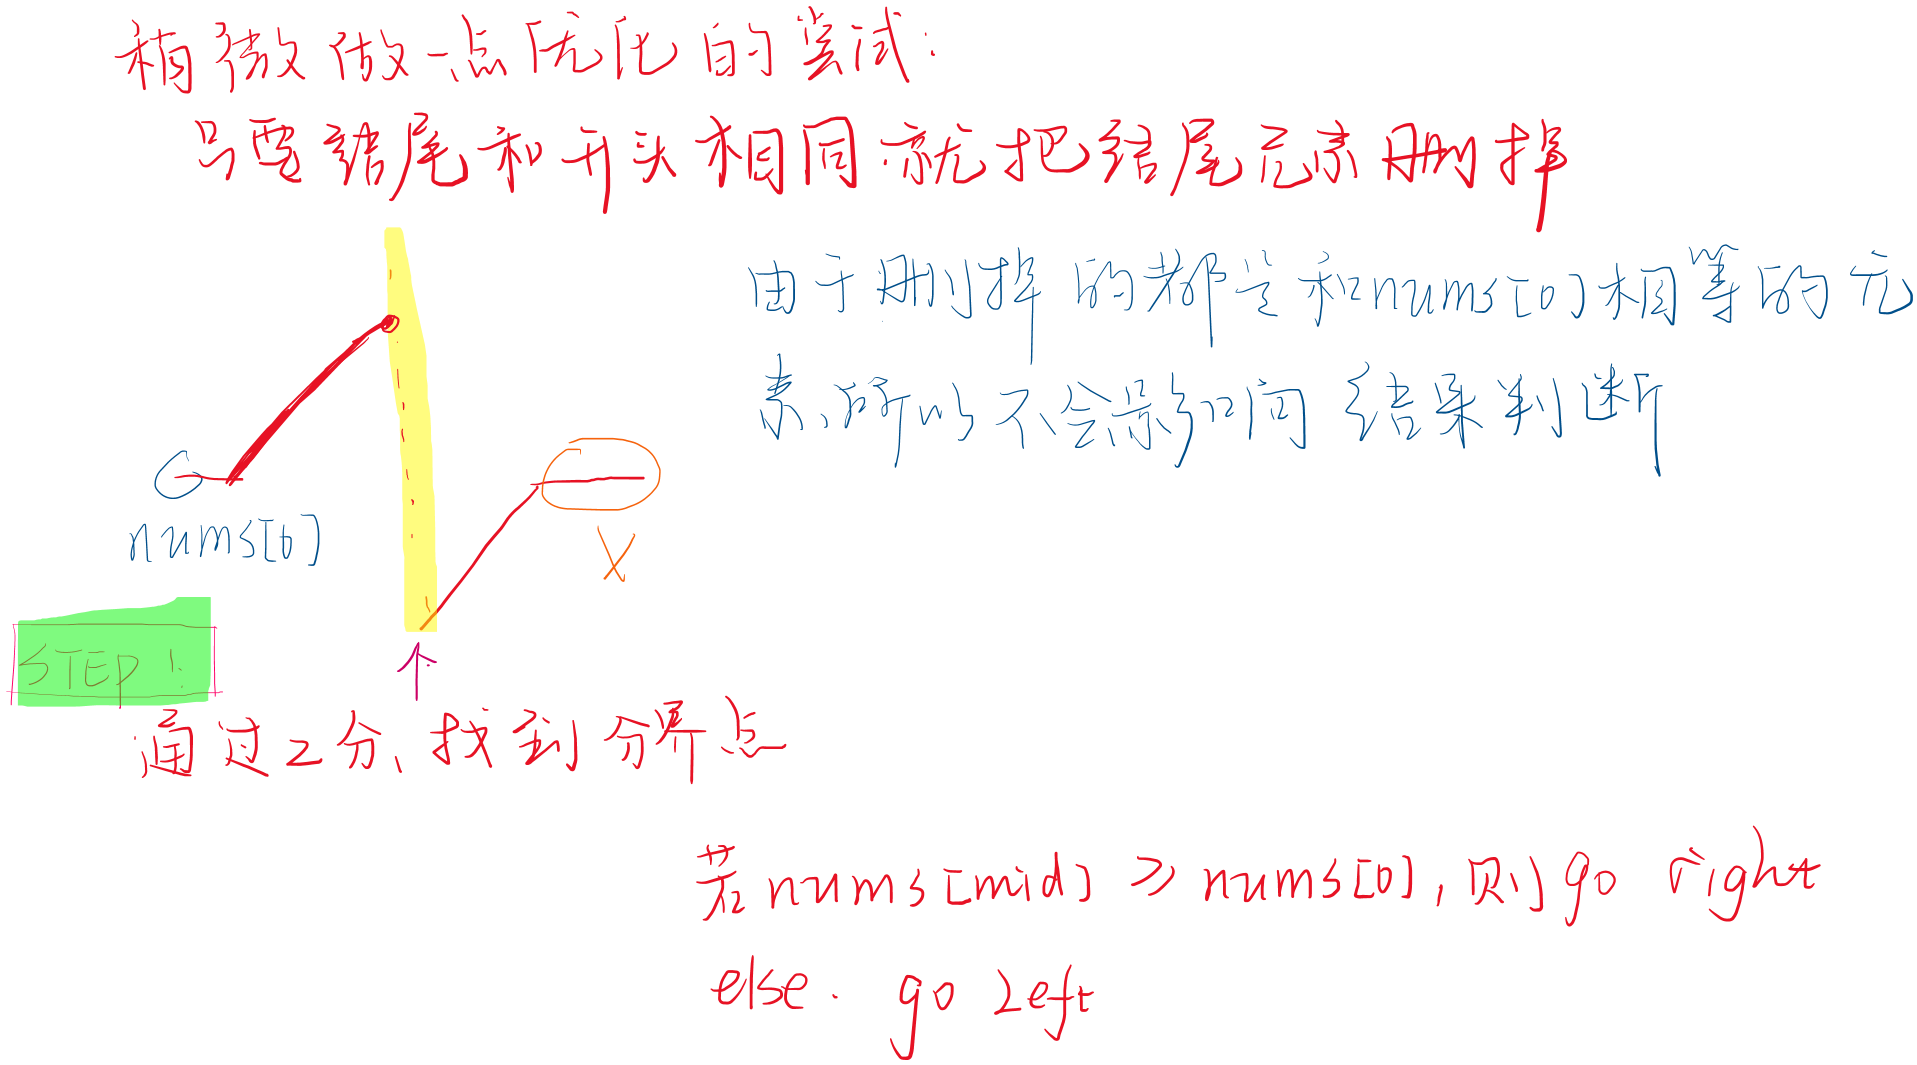 稍微做一点优化的尝试:
只要结尾和开头相同.就把结尾元素删掉
由于删掉的都是和nums[0]相等的元
素,所以不会影响结果判断
nums[0]
X
STEP1:
通过2分,找到分界点
若nums[mid]≥nums[0],则go right
else. go Left